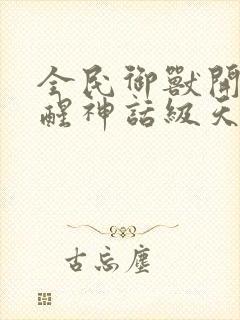 全民御獸開
醒神話級天
古忘塵